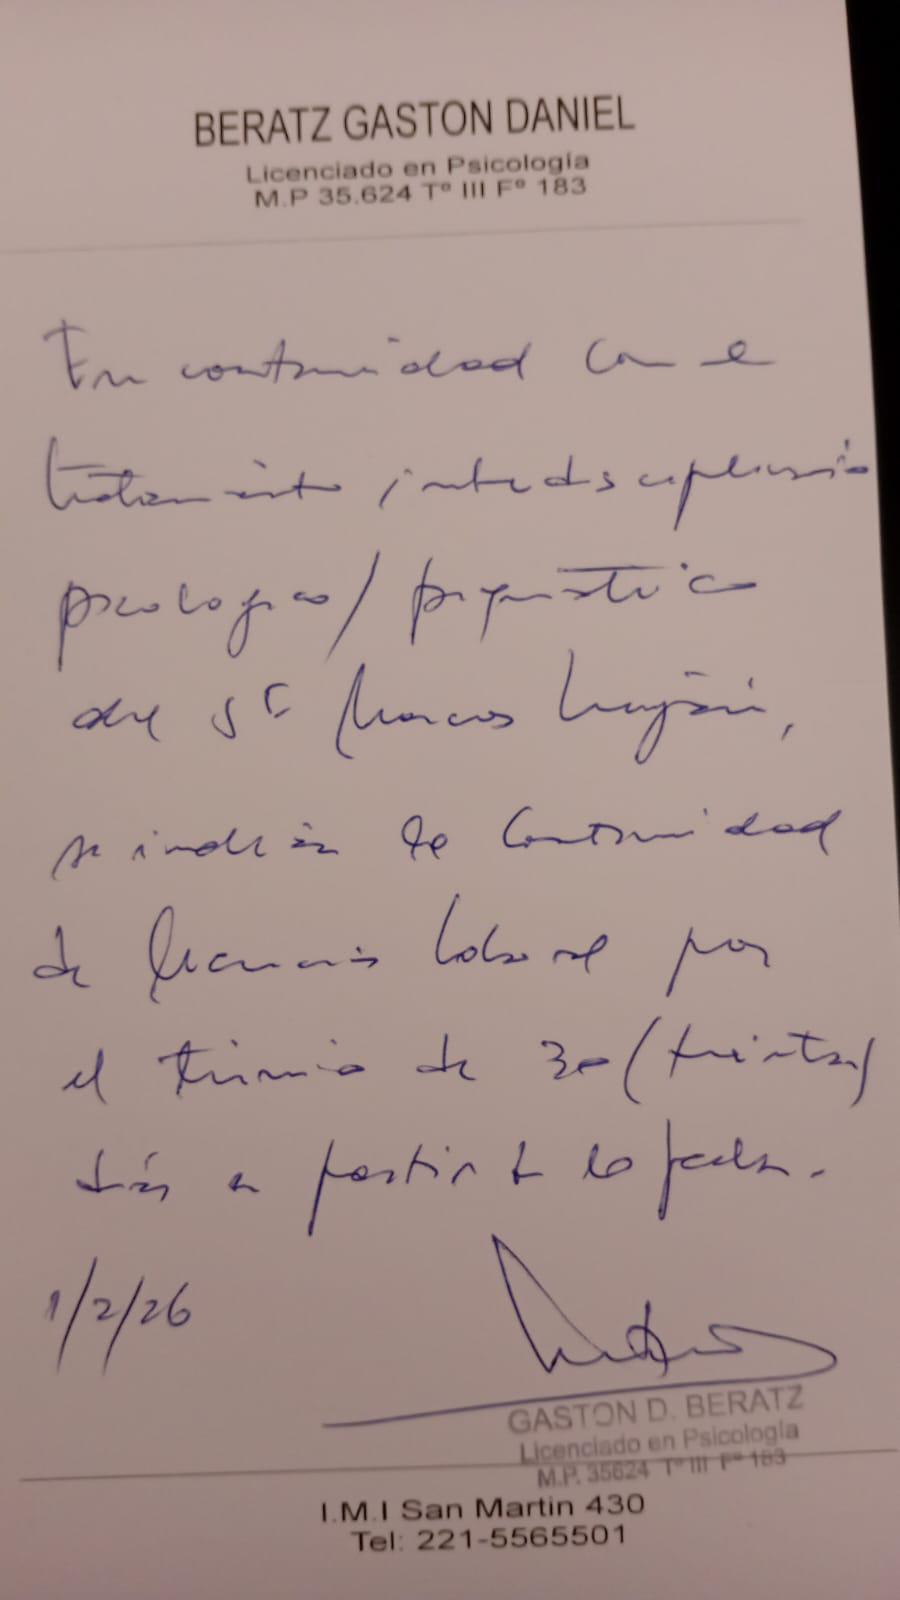 BERATZ GASTON DANIEL
Licenciado en Psicología
M.P 35.624 Tº III Fº 183
En continuidad con el
tratamiento interdisciplinario
psicologico/psiquiatrico
del Sr Marcos
se indica la continuidad
de licencia laboral por
el término de 30 (treinta)
días a partir de la fecha.
1/2/26
GASTON D. BERATZ
Licenciado en Psicología
M.P. 35624 Tº III Fº 183
I.M.I San Martin 430
Tel: 221-5565501